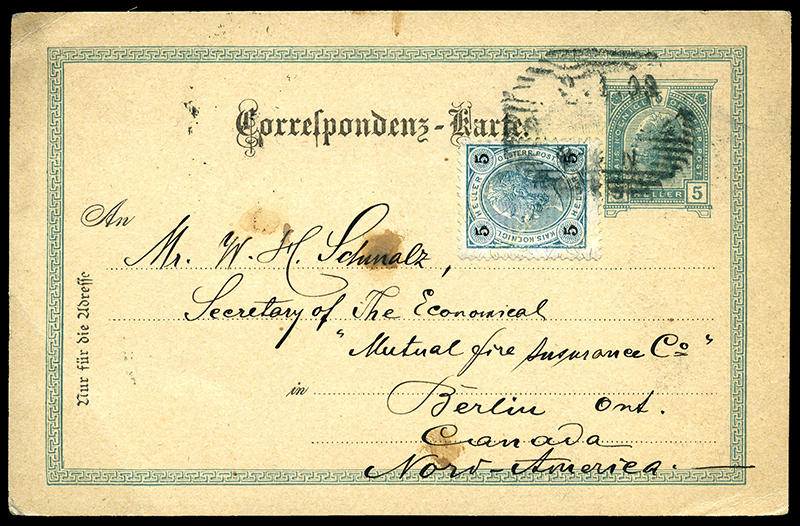 Correspondenz-Karte.
5 5
HELLER 5
5 OESTERR. POST 5
HELLER
5 KAIS. KOENIGL. 5
An
Mr. W. H. Schmalz,
Secretary of The Economical
"Mutual fire Insurance Co"
in Berlin Ont.
Canada
Nord-America.
Nur für die Adresse